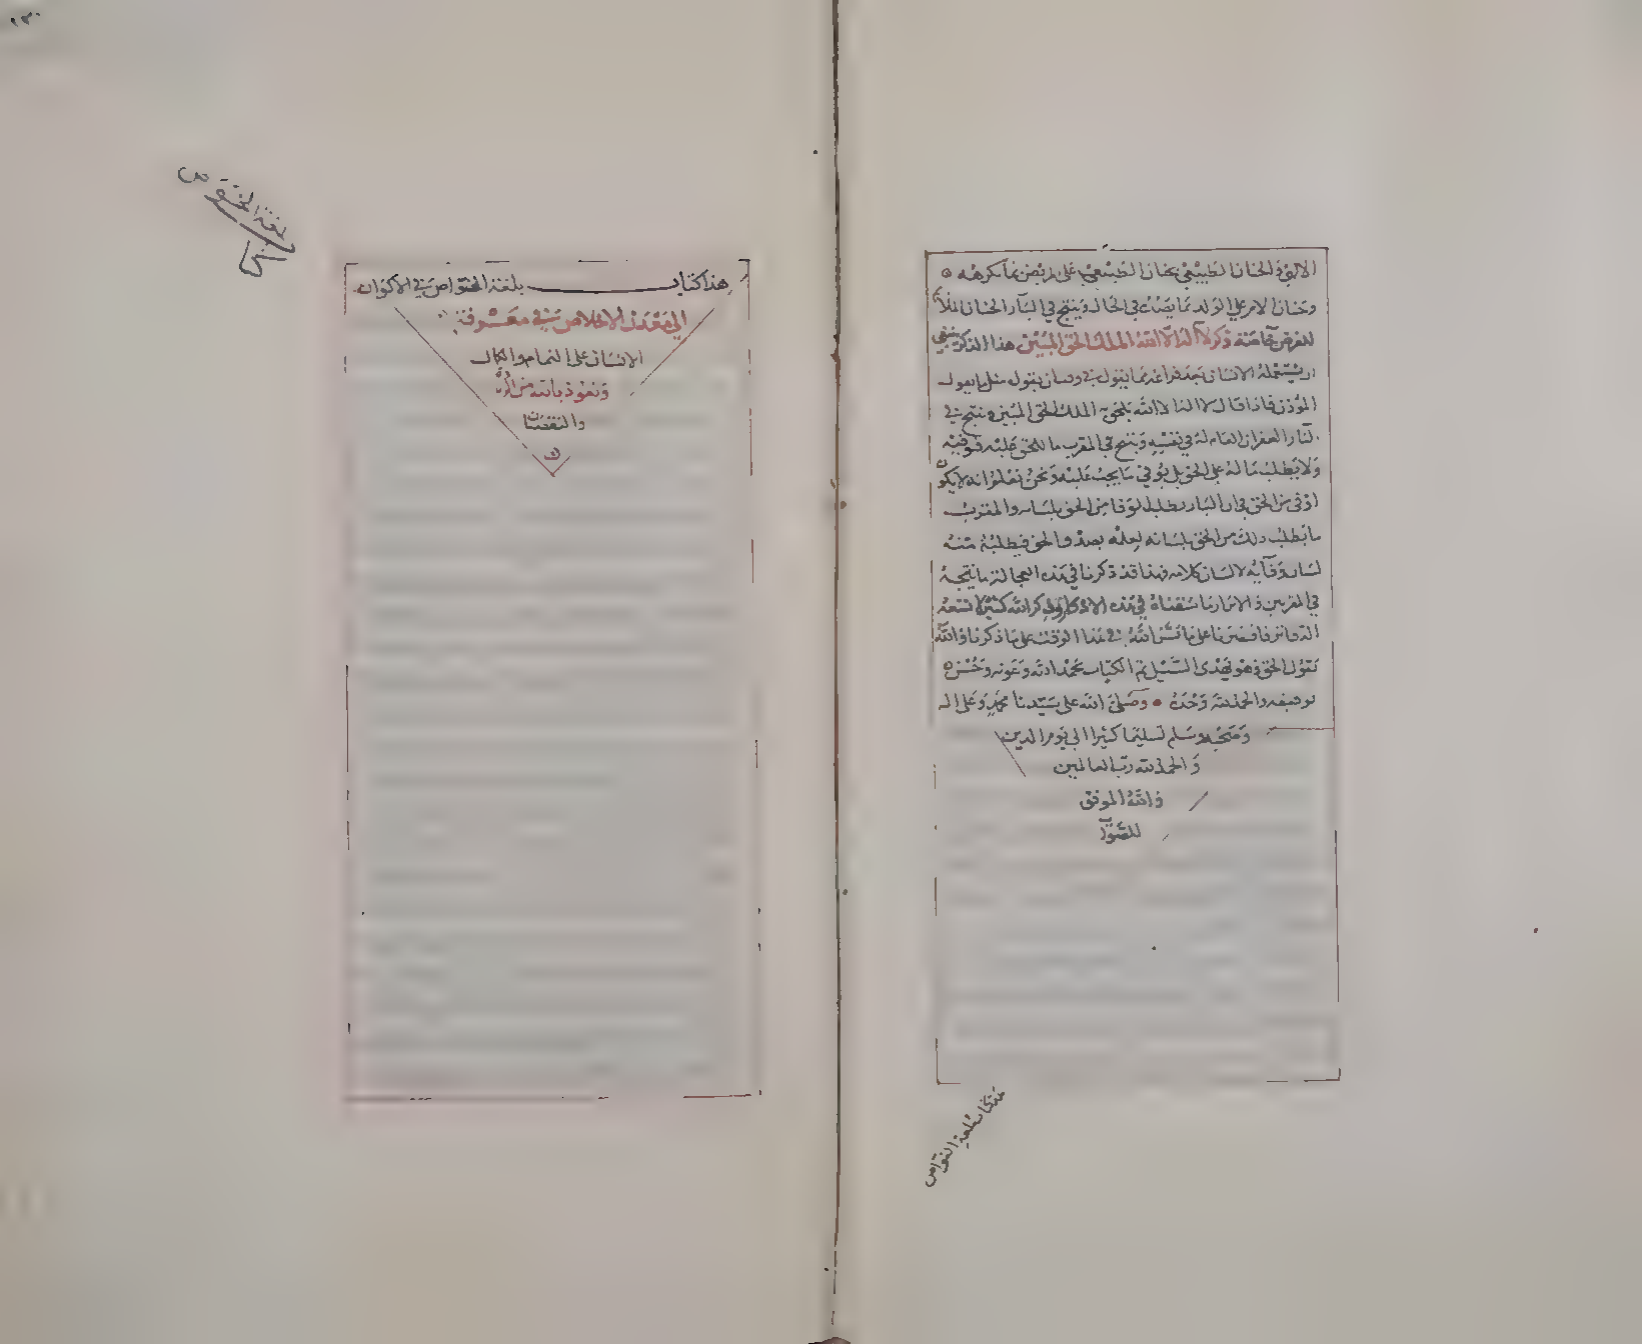 وحنان الامر على الوالد مما يحدث في الحال وينتج في البار الحنان
للغرض خاصة ذكر لا اله الا الله الملك الحق المبين هذا الذكر ينبغي
ان يستعمله الانسان بعد فراغه مما يقول ان يقول مثل ما يقول
المؤذن فاذا قال لا اله الا الله يلحق به الملك الحق المبين وينتج في
في نفسه وينتج في المقرب ما للحق عليه فيوفيه
ولا يطلب ما له على الحق بل يوفي ما يجب عليه ونحن نعلم انه لا يكون
اوفى من الحق يطلب الوفا من الحق بلسانه والمقرب
ما يطلب ذلك من الحق بلسانه لعلمه بصدق الحق فيطلبه منه
لسان وفايه لا لسان كلامه فهذا قد ذكرنا في هذه العجالة ما ينتجه
في المقربين والابرار ما سقناه في هذه الاذكار وذكر الله كثير لا تسعه
الدفاتر فاقتصرنا على ما يسر الله في هذا الوقت على ما ذكرنا والله
يقول الحق وهو يهدي السبيل تم الكتاب بحمد الله وعونه وحسن
توفيقه والحمد لله وحده وصلى الله على سيدنا محمد وعلى اله
وصحبه وسلم تسليما كثيرا الى يوم الدين
والحمد لله رب العالمين
والله الموفق
للصواب
هذا كتاب بلغة الغواص
هذا كتاب بلغة الغواص في الاكوان
الى معدن الاخلاص في معرفة
الانسان على التمام والكمال
ونعوذ بالله من
والنقصان
كتاب
بلغة الغواص